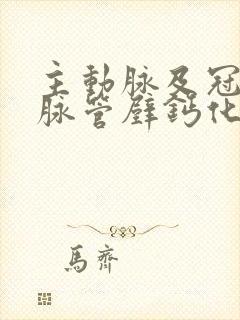 主動脉及冠
脉管壁鈣化
馬齊